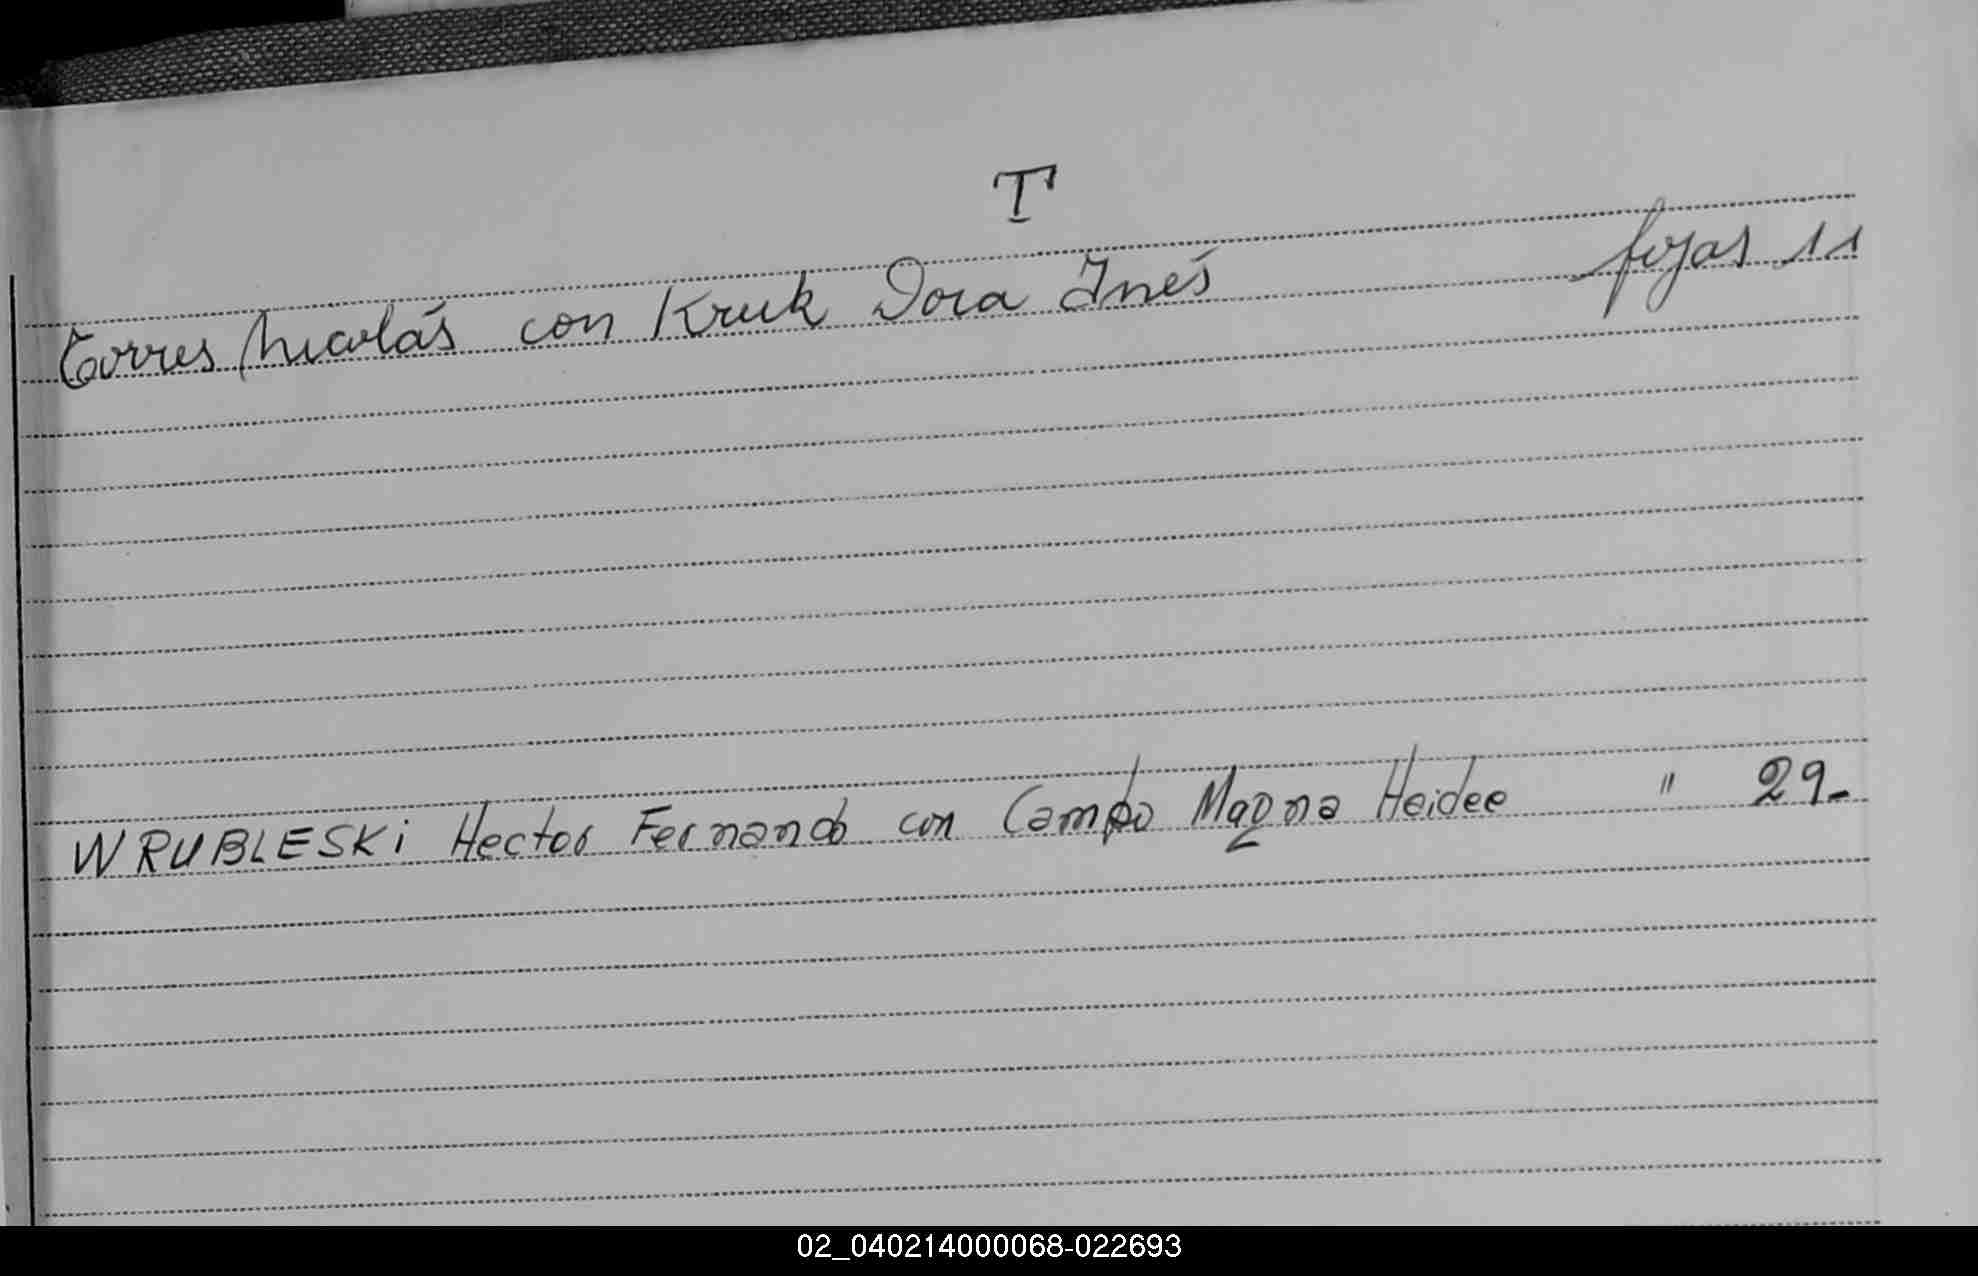 T
Torres Nicolás con Kruk Dora Inés fojas 11
WRUBLESKi Hector Fernando con Campo Magna Heidee " 29-
02_040214000068-022693